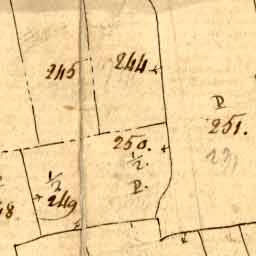 245
244
P
251.
250.
1/2.
P.
1/2
249